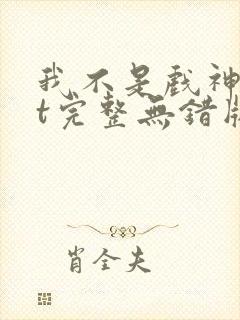 我不是戲神
t完整無錯版
肖全夫